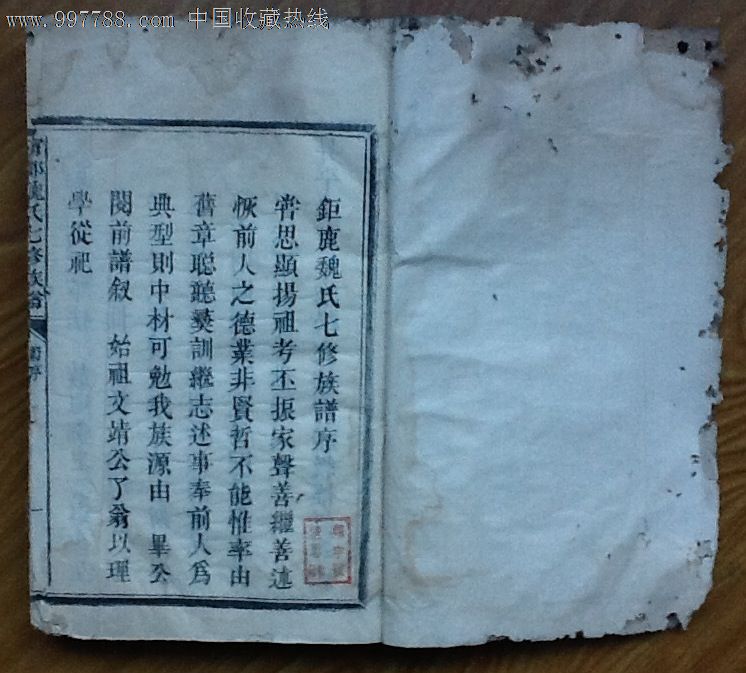 www.997788.com 中国收藏热线
鉅鹿魏氏七修族譜序
嘗思顯揚祖考丕振家聲善繼善述
恢前人之德業非賢哲不能惟率由
舊章聰聽彝訓繼志述事奉前人爲
典型則中材可勉我族源由 畢公
閱前譜叙 始祖文靖公了翁以理
學從祀
魏氏七修族譜